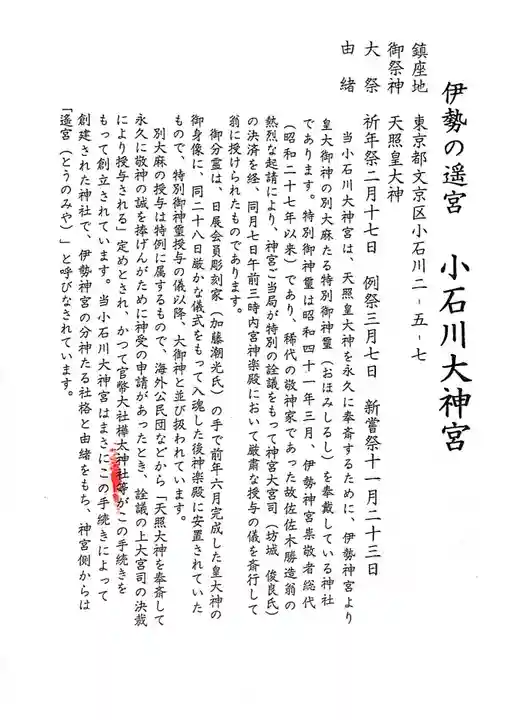 伊勢の遥宮　小石川大神宮
鎮座地　東京都文京区小石川二-五-七
御祭神　天照皇大神
大祭　祈年祭二月十七日　例祭三月七日　新嘗祭十一月二十三日
由緒
当小石川大神宮は、天照皇大神を永久に奉斎するために、伊勢神宮より
皇大御神の別大麻たる特別御神璽（おほみしるし）を奉戴している神社
であります。特別御神璽は昭和四十一年三月、伊勢神宮崇敬者総代
（昭和二十七年以来）であり、稀代の敬神家であった故佐佐木勝造翁の
熱烈な起請により、神宮ご当局が特別の詮議をもって神宮大宮司（坊城　俊良氏）
の決済を経、同月七日午前三時内宮神楽殿において厳粛な授与の儀を斎行して
翁に授けられたものであります。
御分霊は、日展会員彫刻家（加藤潮光氏）の手で前年六月完成した皇大神の
御身像に、同二十八日厳かな儀式をもって入魂した後神楽殿に安置されていた
もので、特別御神璽授与の儀以降、大御神と並び扱われています。
別大麻の授与は特例に属するもので、海外公民団などから「天照大神を奉斎して
永久に敬神の誠を捧げんがために神受の申請があったとき、詮議の上大宮司の決裁
により授与される」定めとされ、かつて官幣大社樺太神社等がこの手続きを
もって創立されています。当小石川大神宮はまさにこの手続きによって
創建された神社で、伊勢神宮の分神たる社格と由緒をもち、神宮側からは
「遥宮（とうのみや）」と呼びなされています。